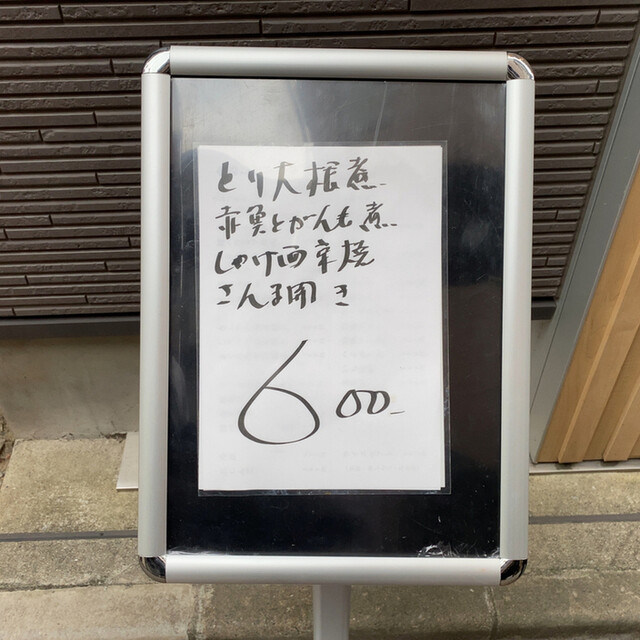 とり大根煮
赤魚とがんも煮
しゃけ西京焼
さんま開き
600-